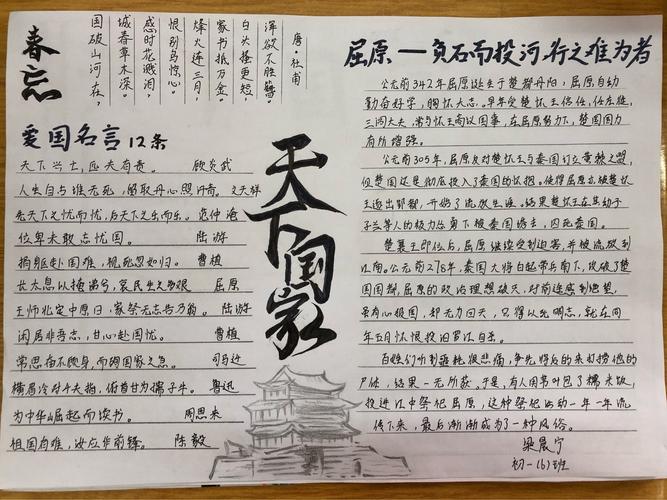 春忘
国破山河在,
城春草木深。
感时花溅泪,
恨别鸟惊心。
烽火连三月,
家书抵万金。
白头搔更短,
浑欲不胜簪。
唐·杜甫
爱国名言12条
天下兴亡,匹夫有责。 顾炎武
人生自古谁无死,留取丹心照汗青。文天祥
先天下之忧而忧,后天下之乐而乐。范仲淹
位卑未敢忘忧国。 陆游
捐躯赴国难,视死忽如归。 曹植
长太息以掩涕兮,哀民生之多艰 屈原
王师北定中原日,家祭无忘告乃翁。 陆游
闲居非吾志,甘心赴国忧。 曹植
常思奋不顾身,而殉国家之急。 司马迁
横眉冷对千夫指,俯首甘为孺子牛。 鲁迅
为中华崛起而读书。 周恩来
祖国有难,汝应作前锋。 陈毅
天下国家
屈原—负石而投河,行之难为者
公元前342年屈原诞生于楚都丹阳,屈原自幼
勤奋好学,胸怀大志。早年受楚怀王信任,任左徒,
三闾大夫,常与怀王商议国事,在屈原努力下,楚国国力
有所增强。
公元前305年,屈原反对楚怀王与秦国订立黄棘之盟,
但楚国还是彻底投入了秦国的怀抱。使得屈原亦被楚怀
王逐出郢都,开始了流放生涯。结果楚怀王在其幼子
子兰等人的极力怂恿下被秦国诱去,囚死秦国。
楚襄王即位后,屈原继续受到迫害,并被流放到
江南。公元前278年,秦国大将白起带兵南下,攻破了楚
国国都,屈原的政治理想破灭,对前途感到绝望,
虽有心报国,却无力回天,只得以死明志,就在同
年五月怀恨投汨罗江自杀。
百姓们听到噩耗很悲痛,争先恐后的来打捞他的
尸体,结果一无所获。于是,有人用苇叶包了糯米饭,
投进江中祭祀屈原,这种祭祀活动一年一年流
传下来,最后渐渐成为了一种风俗。
梁晨宁
初一(6)班